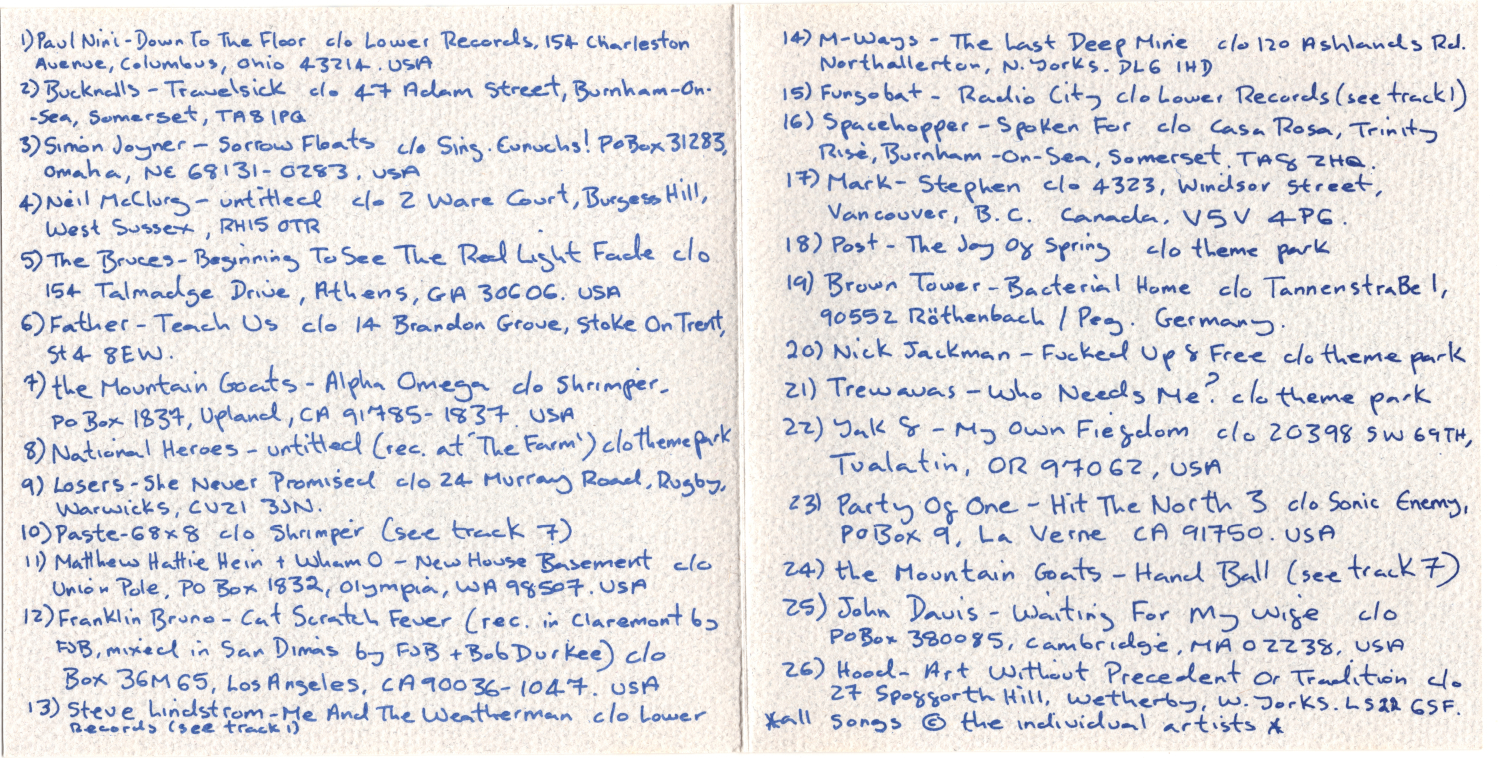 1) Paul Nini - Down To The Floor c/o Lower Records, 154 Charleston
Avenue, Columbus, Ohio 43214. USA
2) Bucknalls - Travelsick c/o 47 Adam Street, Burnham-On-
-Sea, Somerset, TA8 1PQ
3) Simon Joyner - Sorrow Floats c/o Sing. Eunuchs! PO Box 31283,
Omaha, NE 68131-0283. USA
4) Neil McClurg - untitled c/o 2 Ware Court, Burgess Hill,
West Sussex, RH15 0TR
5) The Bruces - Beginning To See The Red Light Fade c/o
154 Talmadge Drive, Athens, GA 30606. USA
6) Father - Teach Us c/o 14 Brandon Grove, Stoke On Trent,
St4 8EW.
7) the Mountain Goats - Alpha Omega c/o Shrimper.
PO Box 1837, Upland, CA 91785-1837. USA
8) National Heroes - untitled (rec. at 'The Farm') c/o theme park
9) Losers - She Never Promised c/o 24 Murray Road, Rugby,
Warwicks, CV21 3JN.
10) Paste - 68x8 c/o Shrimper (see track 7)
11) Matthew Hattie Hein + Wham O - New House Basement c/o
Union Pole, PO Box 1832, Olympia, WA 98507. USA
12) Franklin Bruno - Cat Scratch Fever (rec. in Claremont by
FJB, mixed in San Dimas by FJB + Bob Durkee) c/o
Box 36M65, Los Angeles, CA 90036-1047. USA
13) Steve Lindstrom - Me And The Weatherman c/o Lower
Records (see track 1)
14) M-Ways - The Last Deep Mine c/o 120 Ashlands Rd.
Northallerton, N. Yorks. DL6 1HD
15) Fungobat - Radio City c/o Lower Records (see track 1)
16) Spacehopper - Spoken For c/o Casa Rosa, Trinity
Rise, Burnham-On-Sea, Somerset. TA8 2HQ.
17) Mark - Stephen c/o 4323, Windsor Street,
Vancouver, B.C. Canada. V5V 4P6.
18) Post - The Joy Of Spring c/o theme park
19) Brown Tower - Bacterial Home c/o Tannenstraße 1,
90552 Röthenbach / Peg. Germany.
20) Nick Jackman - Fucked Up & Free c/o theme park
21) Trewavas - Who Needs Me? c/o theme park
22) Yak 8 - My Own Fiefdom c/o 20398 SW 69TH,
Tualatin, OR 97062, USA
23) Party Of One - Hit The North 3 c/o Sonic Enemy,
PO Box 9, La Verne CA 91750. USA
24) the Mountain Goats - Hand Ball (see track 7)
25) John Davis - Waiting For My Wife c/o
PO Box 380085, Cambridge, MA 02238, USA
26) Hood - Art Without Precedent Or Tradition c/o
27 Spofforth Hill, Wetherby, W. Yorks. LS22 6SF.
*all songs © the individual artists *